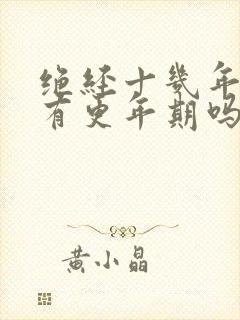 绝经十几年
有更年期吗
黄小晶